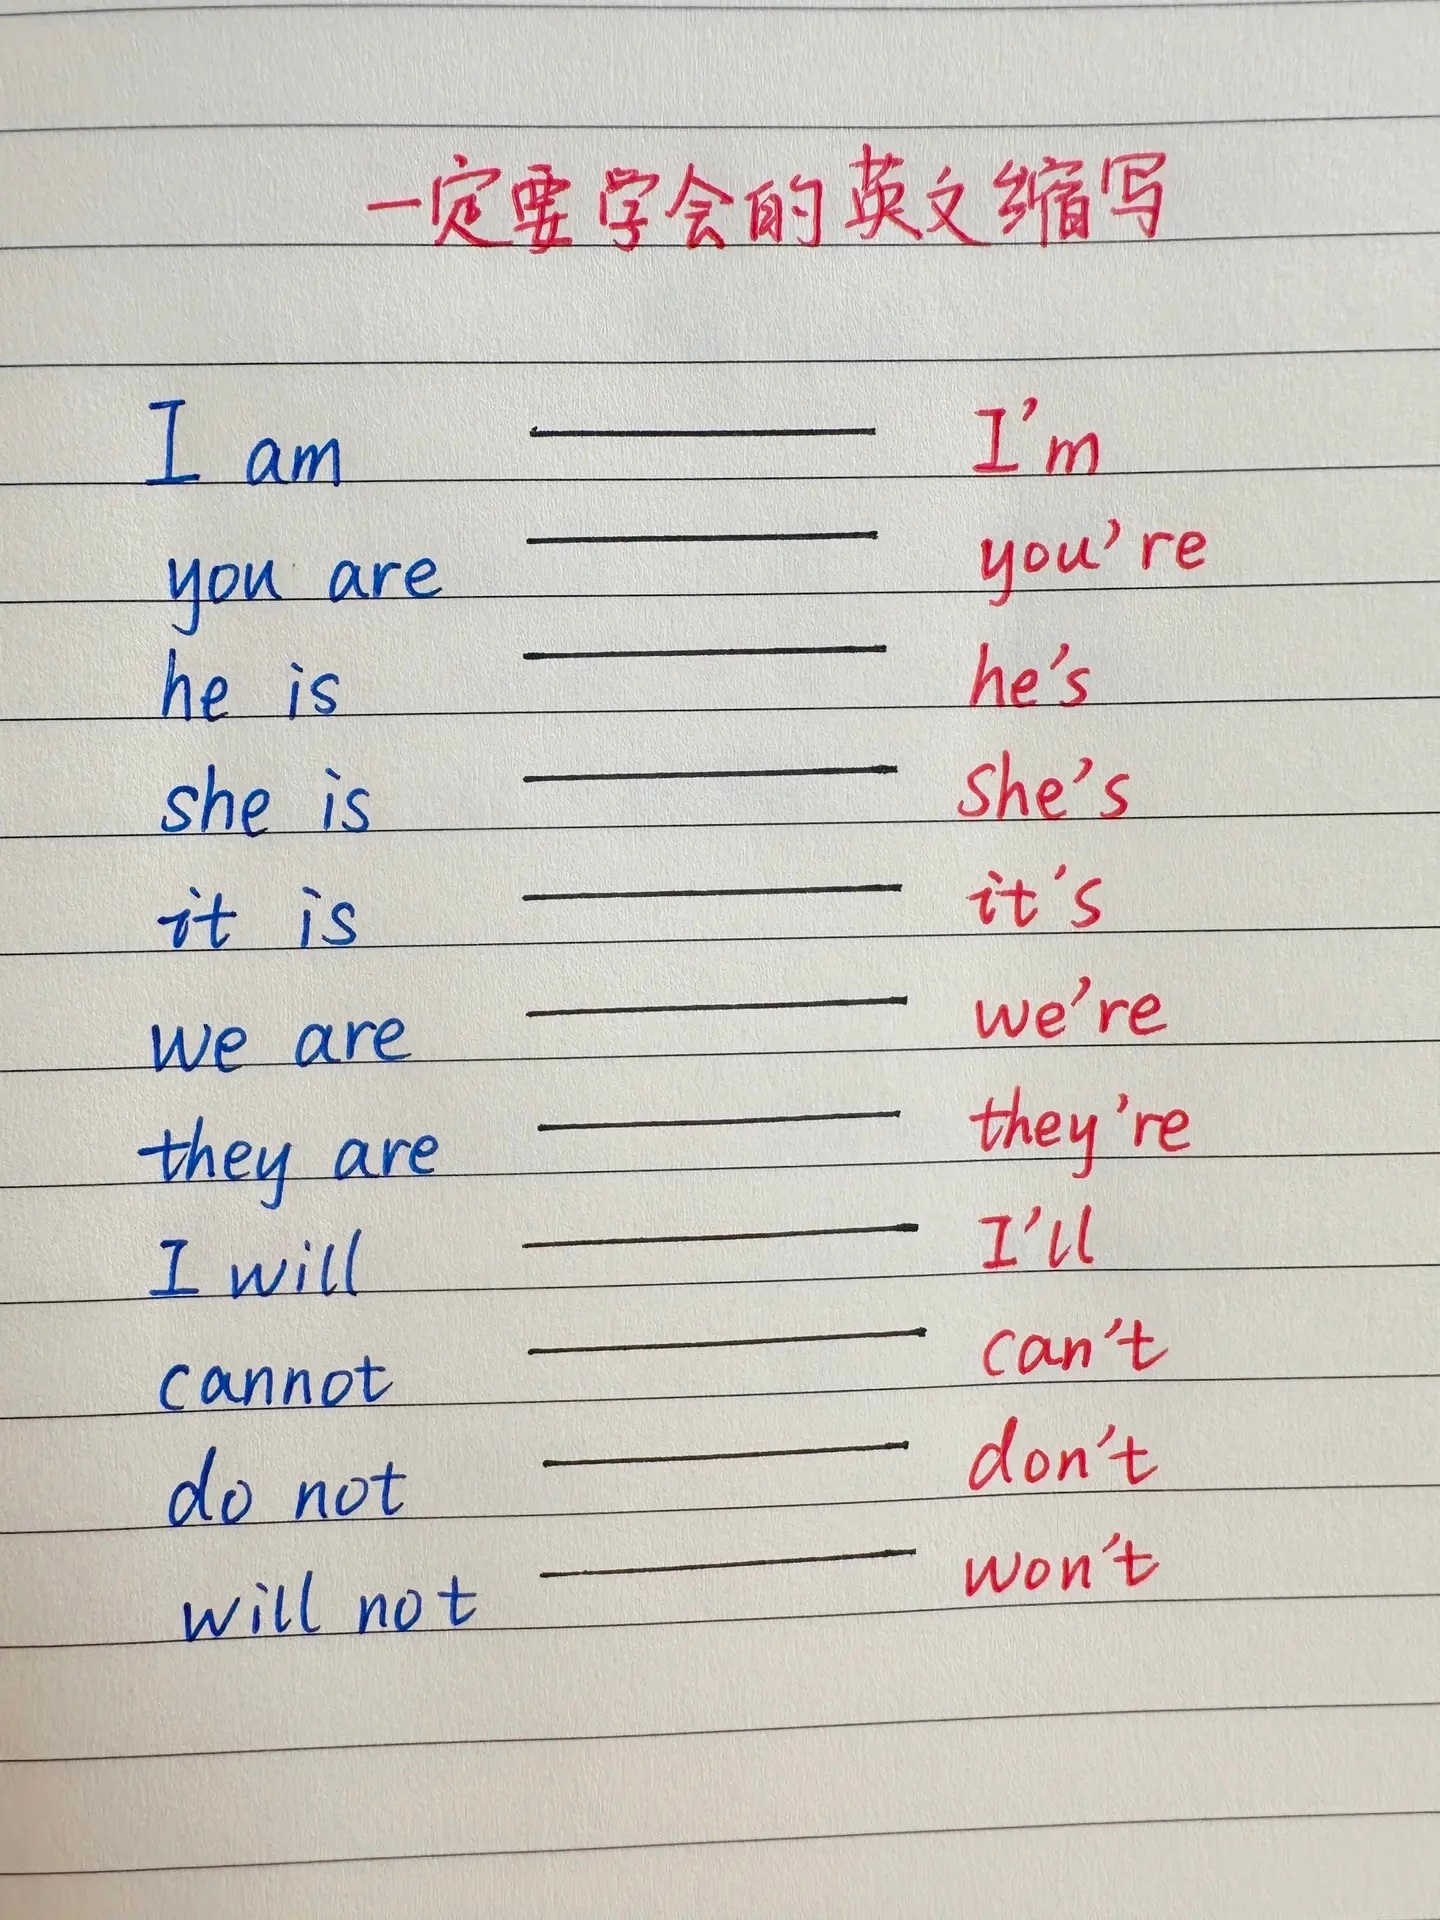 一定要学会的英文缩写
I am —— I'm
you are —— you're
he is —— he's
she is —— she's
it is —— it's
we are —— we're
they are —— they're
I will —— I'll
cannot —— can't
do not —— don't
will not —— won't